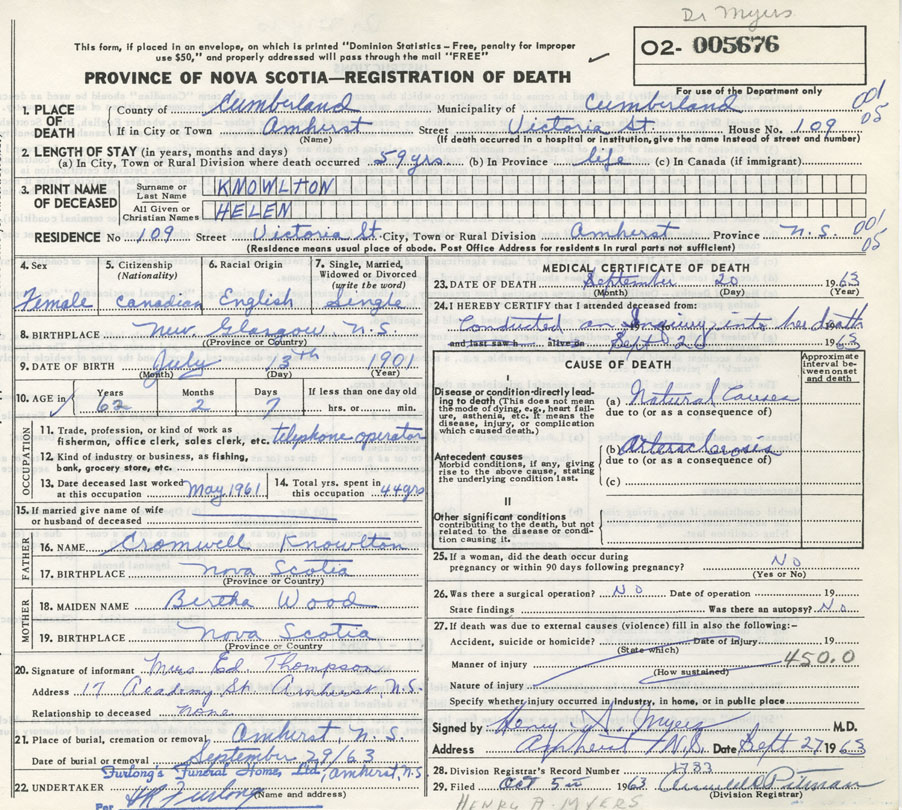 Dr Myers
This form, if placed in an envelope, on which is printed "Dominion Statistics – Free, penalty for improper
use $50," and properly addressed will pass through the mail "FREE"
02- 005676
PROVINCE OF NOVA SCOTIA—REGISTRATION OF DEATH
For use of the Department only
1. PLACE OF DEATH County of Cumberland Municipality of Cumberland 001 05
If in City or Town Amherst Street Victoria St. House No. 109
(Name) (If death occurred in a hospital or institution, give the name instead of street and number)
2. LENGTH OF STAY (in years, months and days)
(a) In City, Town or Rural Division where death occurred 59 yrs. (b) In Province life (c) In Canada (if immigrant)
3. PRINT NAME OF DECEASED Surname or Last Name KNOWLTON
All Given or Christian Names HELEN
RESIDENCE No. 109 Street Victoria St. City, Town or Rural Division Amherst Province N.S. 001 05
(Residence means usual place of abode. Post Office Address for residents in rural parts not sufficient)
4. Sex 5. Citizenship (Nationality) 6. Racial Origin 7. Single, Married, Widowed or Divorced (write the word)
Female Canadian English Single
8. BIRTHPLACE New Glasgow N.S.
(Province or Country)
9. DATE OF BIRTH July 13th 1901
(Month) (Day) (Year)
10. AGE in Years Months Days If less than one day old
62 2 7 hrs. or min.
OCCUPATION
11. Trade, profession, or kind of work as
fisherman, office clerk, sales clerk, etc. telephone operator
12. Kind of industry or business, as fishing,
bank, grocery store, etc.
13. Date deceased last worked at this occupation May 1961 14. Total yrs. spent in this occupation 44 yrs
15. If married give name of wife
or husband of deceased
FATHER
16. NAME Cromwell Knowlton
17. BIRTHPLACE Nova Scotia
(Province or Country)
MOTHER
18. MAIDEN NAME Bertha Wood
19. BIRTHPLACE Nova Scotia
(Province or Country)
20. Signature of informant Mrs Ed. Thompson
Address 17 Academy St. Amherst, N.S.
Relationship to deceased none
21. Place of burial, cremation or removal Amherst, N.S.
Date of burial or removal September 29/63
Furlong's Funeral Home, Ltd, Amherst, N.S
22. UNDERTAKER Furlong
(Name and address)
Per
MEDICAL CERTIFICATE OF DEATH
23. DATE OF DEATH September 20 1963
(Month) (Day) (Year)
24. I HEREBY CERTIFY that I attended deceased from:
Conducted an Inquiry into her death
and last saw h alive on Sept 20 1963
CAUSE OF DEATH
Approximate interval between onset and death
I
Disease or condition directly leading to death (This does not mean the mode of dying, e.g., heart failure, asthenia, etc. It means the disease, injury, or complication which caused death.)
(a) Natural Causes
due to (or as a consequence of)
Antecedent causes
Morbid conditions, if any, giving rise to the above cause, stating the underlying condition last.
(b)
due to (or as a consequence of)
(c)
II
Other significant conditions
contributing to the death, but not related to the disease or condition causing it.
25. If a woman, did the death occur during
pregnancy or within 90 days following pregnancy? No
(Yes or No)
26. Was there a surgical operation? No Date of operation 19
State findings Was there an autopsy? No
27. If death was due to external causes (violence) fill in also the following:–
Accident, suicide or homicide? Date of injury 19
(State which)
Manner of injury 450.0
(How sustained)
Nature of injury
Specify whether injury occurred in Industry, in home, or in public place
Signed by Henry A. Myers M.D.
Address Amherst N.S. Date Sept 27 1963
28. Division Registrar's Record Number 1783
29. Filed Oct 5th 1963
(Division Registrar)
HENRY A. MYERS